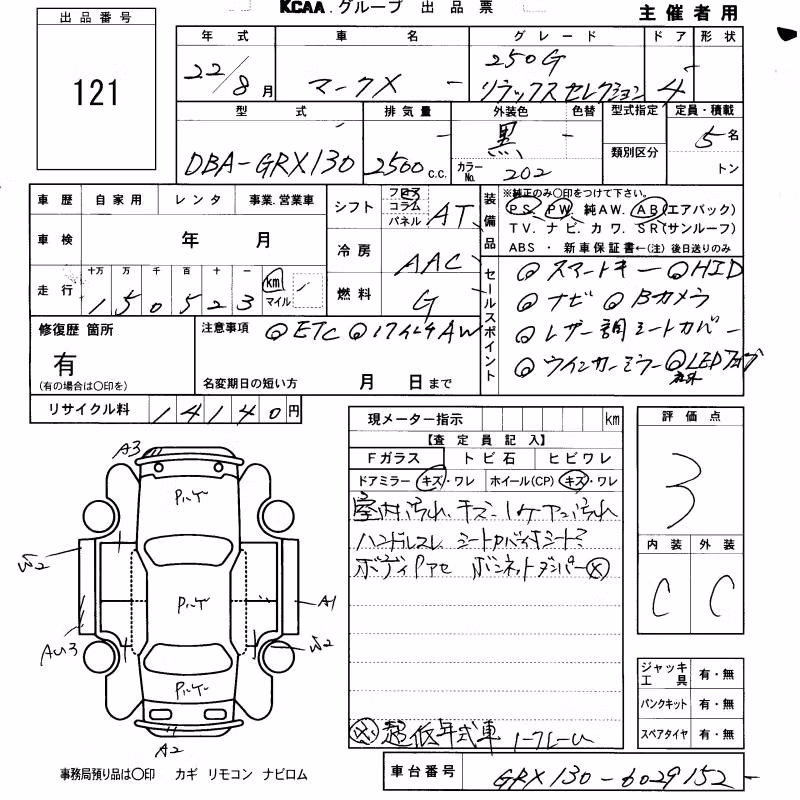 KCAA.グループ 出品票
主催者用
出品番号
121
年式 車名 グレード ドア 形状
22/8月 マークX 250G リラックスセレクション 4
型式 排気量 外装色 色替 型式指定 定員・積載
DBA-GRX130 2500c.c. 黒 カラーNo. 202 類別区分 5名
トン
車歴 自家用 レンタ 事業.営業車
車検 年 月
走行 十万 万 千 百 十 一
150523 km マイル
シフト フロア コラム パネル AT
冷房 AAC
燃料 G
装備品
※純正のみ○印をつけて下さい。
PS. PW. 純AW. AB(エアバック)
TV. ナビ. カワ. SR(サンルーフ)
ABS ・ 新車保証書←(注) 後日送りのみ
セールスポイント
◎スマートキー ◎HID
◎ナビ ◎Bカメラ
◎レザー調シートカバー
◎ウインカーミラー ◎LED
修復歴 箇所
有
(有の場合は○印を)
注意事項 ◎ETC ◎17インチAW
名変期日の短い方 月 日まで
リサイクル料 14140円
現メーター指示 km
【査定員記入】
Fガラス トビ石 ヒビワレ
ドアミラー キズ・ワレ ホイール(CP) キズ・ワレ
室内汚れ、キズ
ハンドルスレ
ボンネットダンパー
超低年式車
評価点
3
内装 外装
C C
ジャッキ工具 有・無
パンクキット 有・無
スペアタイヤ 有・無
A3
W2
A1
AU3
W2
A2
事務局預り品は○印 カギ リモコン ナビロム
車台番号 GRX130-6029152